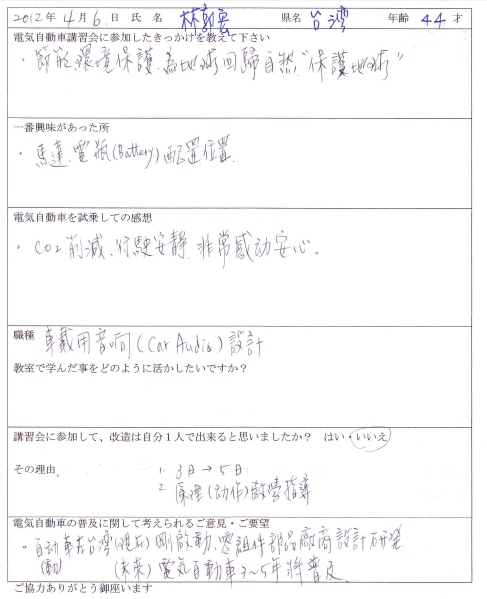 2012年 4月 6日 氏 名 林郭宏 県名 台湾 年齢 44 才
電気自動車講習会に参加したきっかけを教えて下さい
・節能、環境保護、為地球回歸自然"保護地球"
一番興味があった所
・馬達、電瓶(Battery)配置位置
電気自動車を試乗しての感想
・CO2削減、行駛安靜、非常感动安心。
職種 車載用音响(Car Audio)設計
教室で学んだ事をどのように活かしたいですか？
講習会に参加して、改造は自分１人で出来ると思いましたか？ はい・いいえ
その理由、 1. 3日→5日
2. 原理(动作)指導
電気自動車の普及に関して考えられるご意見・ご要望
・自动車在台湾(現在)剛啟動、零組件部品廠商設計研発
(動) (未来)電気自動車3~5年將普及
ご協力ありがとう御座います